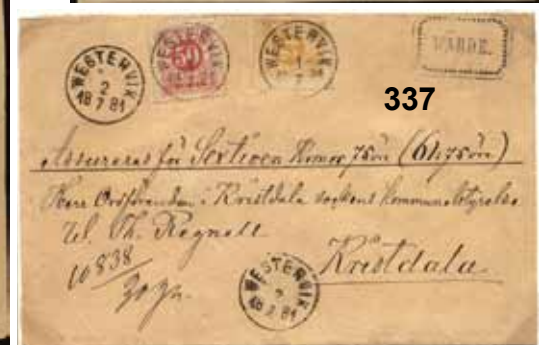 WESTERVIK
2
18 7 81
WESTERVIK
50
WESTERVIK
1
7
WÄRDE.
337
Assureras för Sextioen Kronor 75 öre (61,75 öre)
Herr Ordföranden i Kristdala sockens Kommunalstyrelse
Th. Regnell
Kristdala
10838
WESTERVIK
2
18 7 81